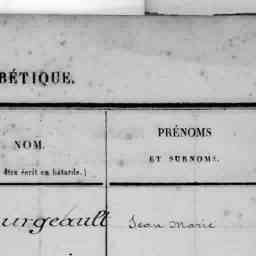 BÉTIQUE.
NOM.
être écrit en bâtarde.)
PRÉNOMS
ET SURNOMS.
urgeault Jean Marie